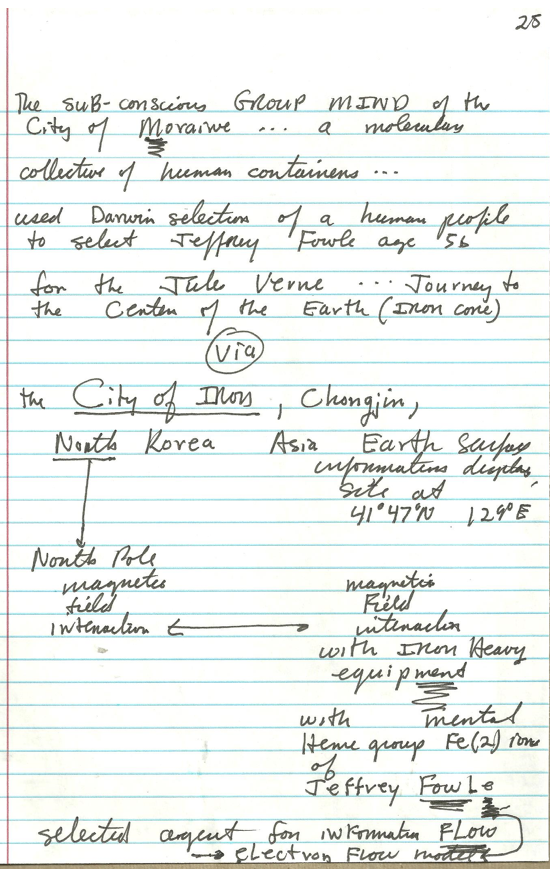 28
The SUB-conscious GROUP MIND of the
City of Moraine ... a molecular
collective of human containers ...
used Darwin selection of a human profile
to select Jeffrey Fowle age 56
for the Jule Verne ... Journey to
the Center of the Earth (Iron core)
Via
the City of Iron, Chongjin,
North Korea Asia Earth Surface
information display
site at
41°47'N 129°E
North Pole
magnetic
field
interaction
magnetic
Field
interaction
with Iron Heavy
equipment
with mental
Heme group Fe(2) ions
of
Jeffrey FowLe
selected argent for information FLow
→ electron FLow models